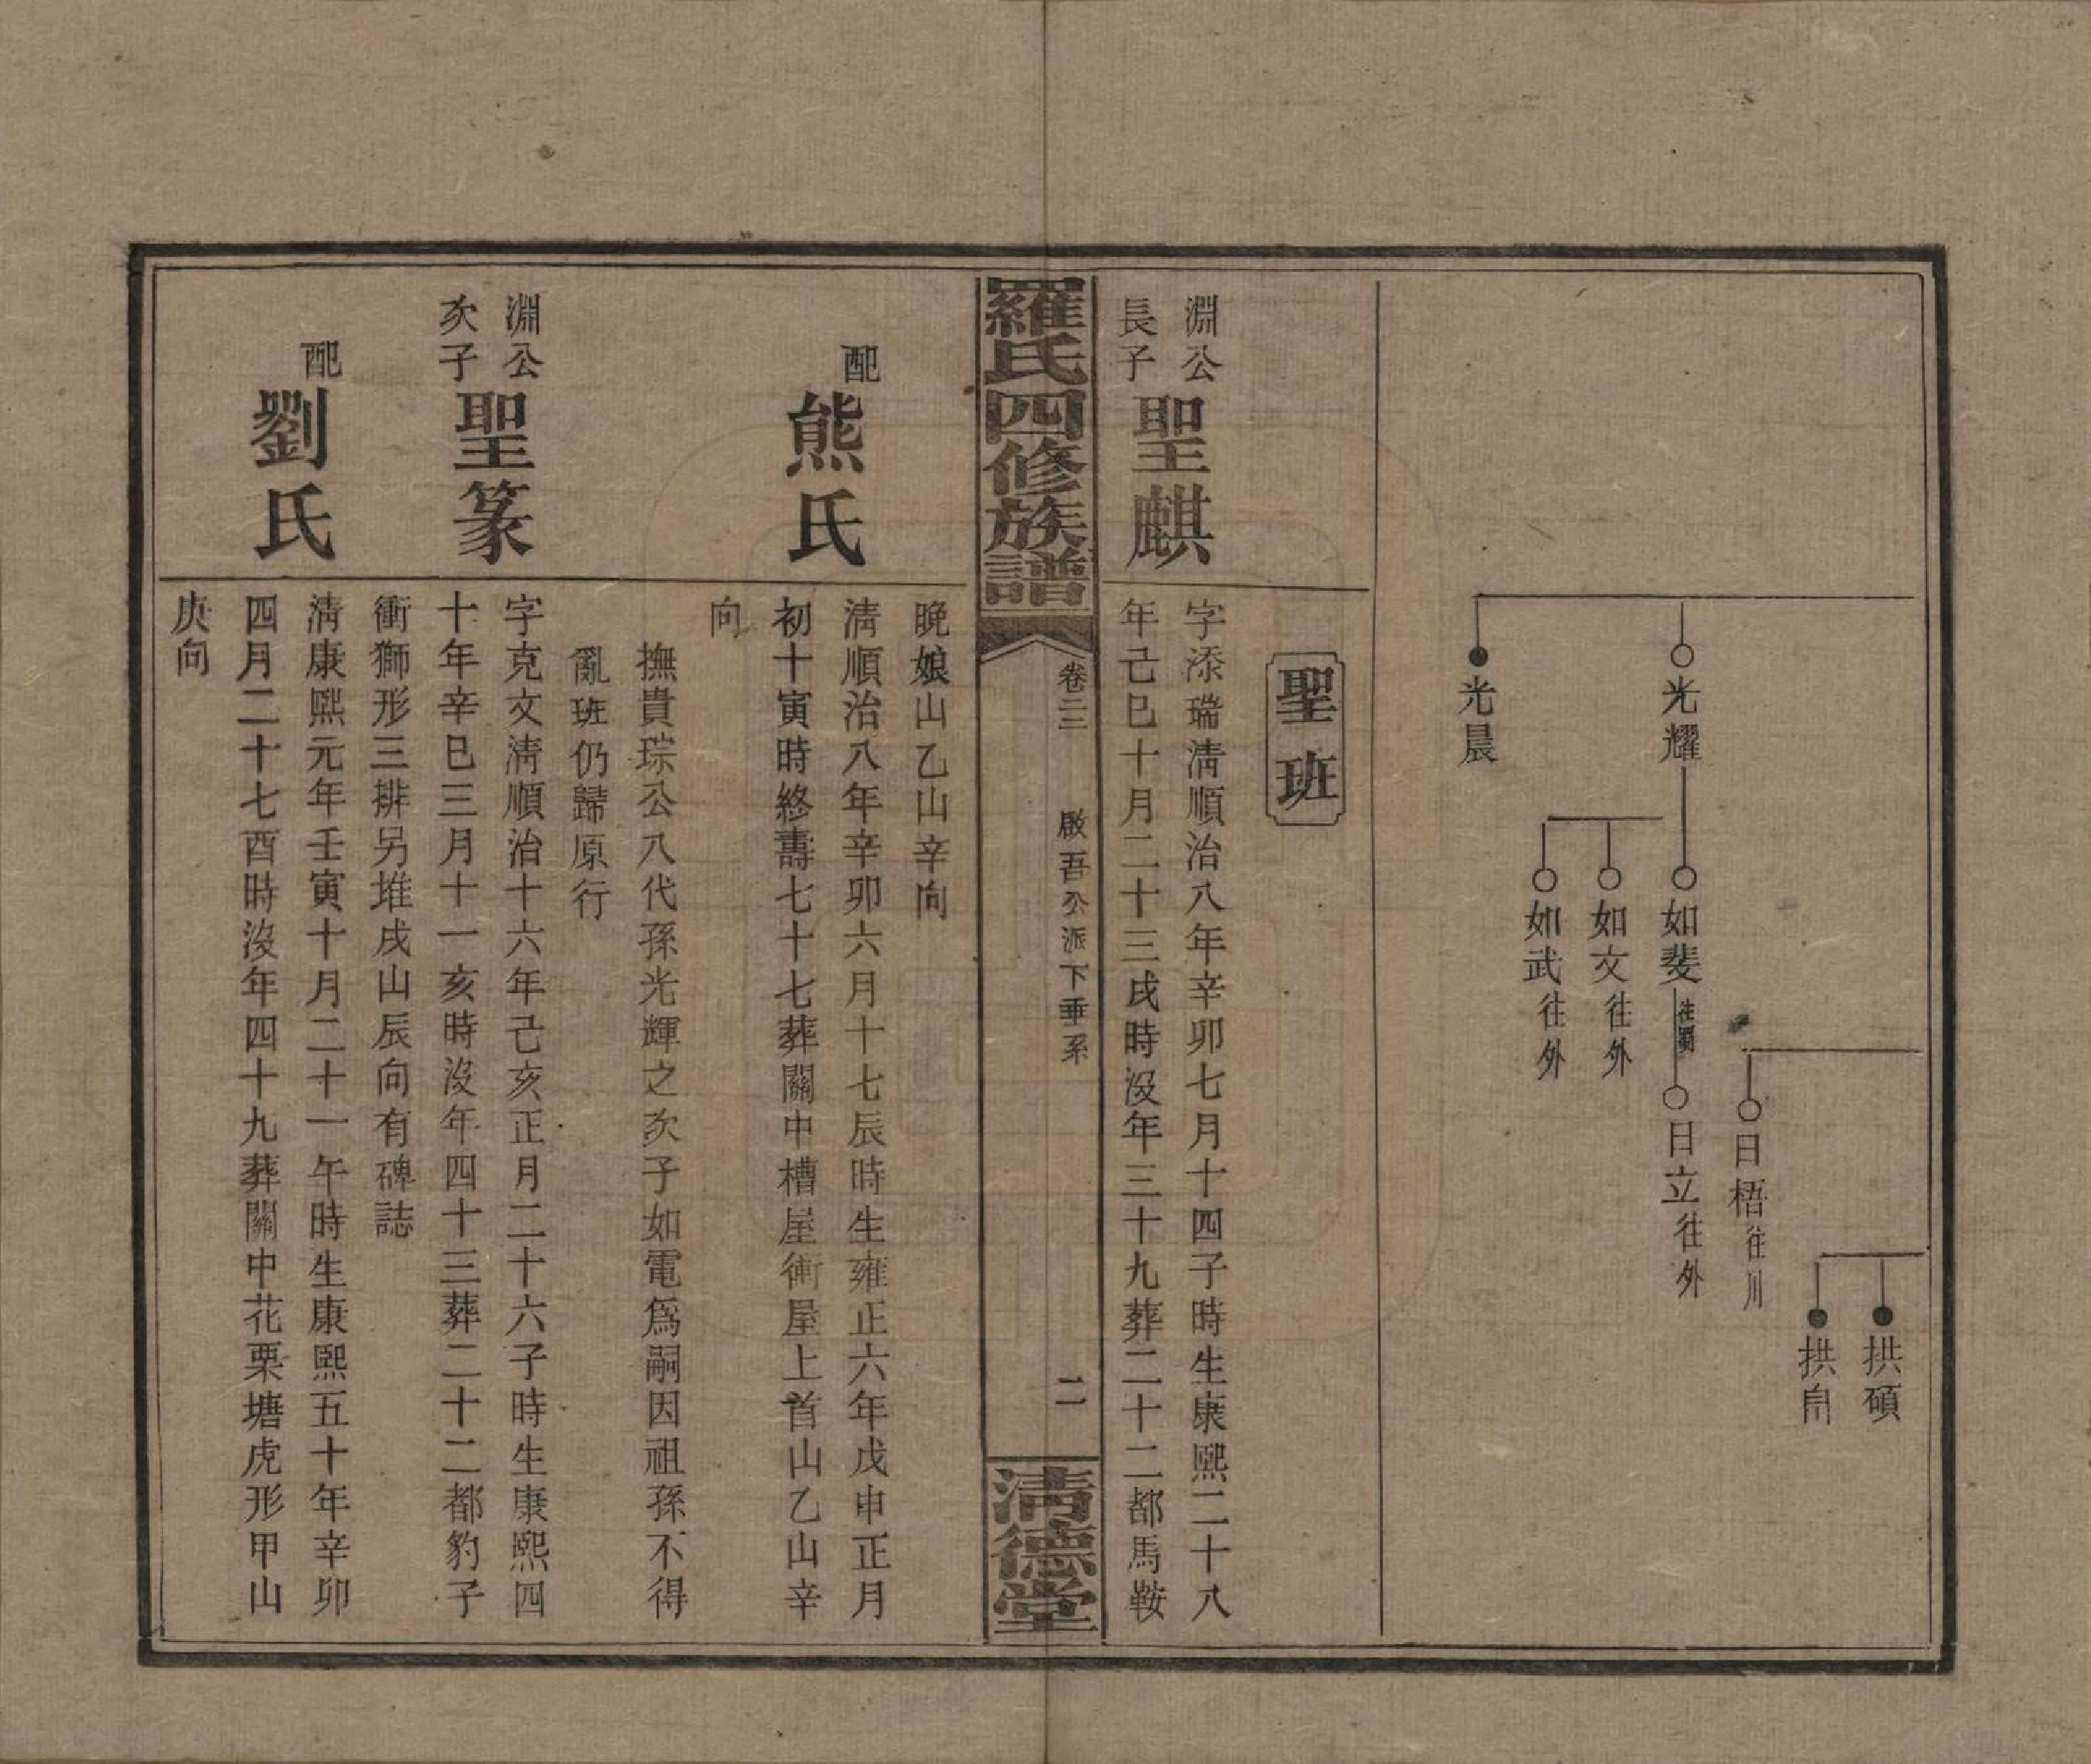 拱碩
拱帛
日梧往川
光耀
如斐往蜀
日立往外
如文往外
如武往外
光晨
聖班
淵公
長子
聖麒
字添瑞淸順治八年辛卯七月十四子時生康熙二十八
年己巳十月二十三戌時沒年三十九葬二十二都馬鞍
羅氏四修族譜
卷二三
啟吾公派下垂系
二
淸德堂
晚娘山乙山辛向
配
熊氏
淸順治八年辛卯六月十七辰時生雍正六年戊申正月
初十寅時終壽七十七葬關中槽屋衝屋上首山乙山辛
向
撫貴琮公八代孫光輝之次子如電爲嗣因祖孫不得
亂班仍歸原行
淵公
次子
聖篆
字克文淸順治十六年己亥正月二十六子時生康熙四
十年辛巳三月十一亥時沒年四十三葬二十二都豹子
衝獅形三排另堆戌山辰向有碑誌
配
劉氏
淸康熙元年壬寅十月二十一午時生康熙五十年辛卯
四月二十七酉時沒年四十九葬關中花栗塘虎形甲山
庚向